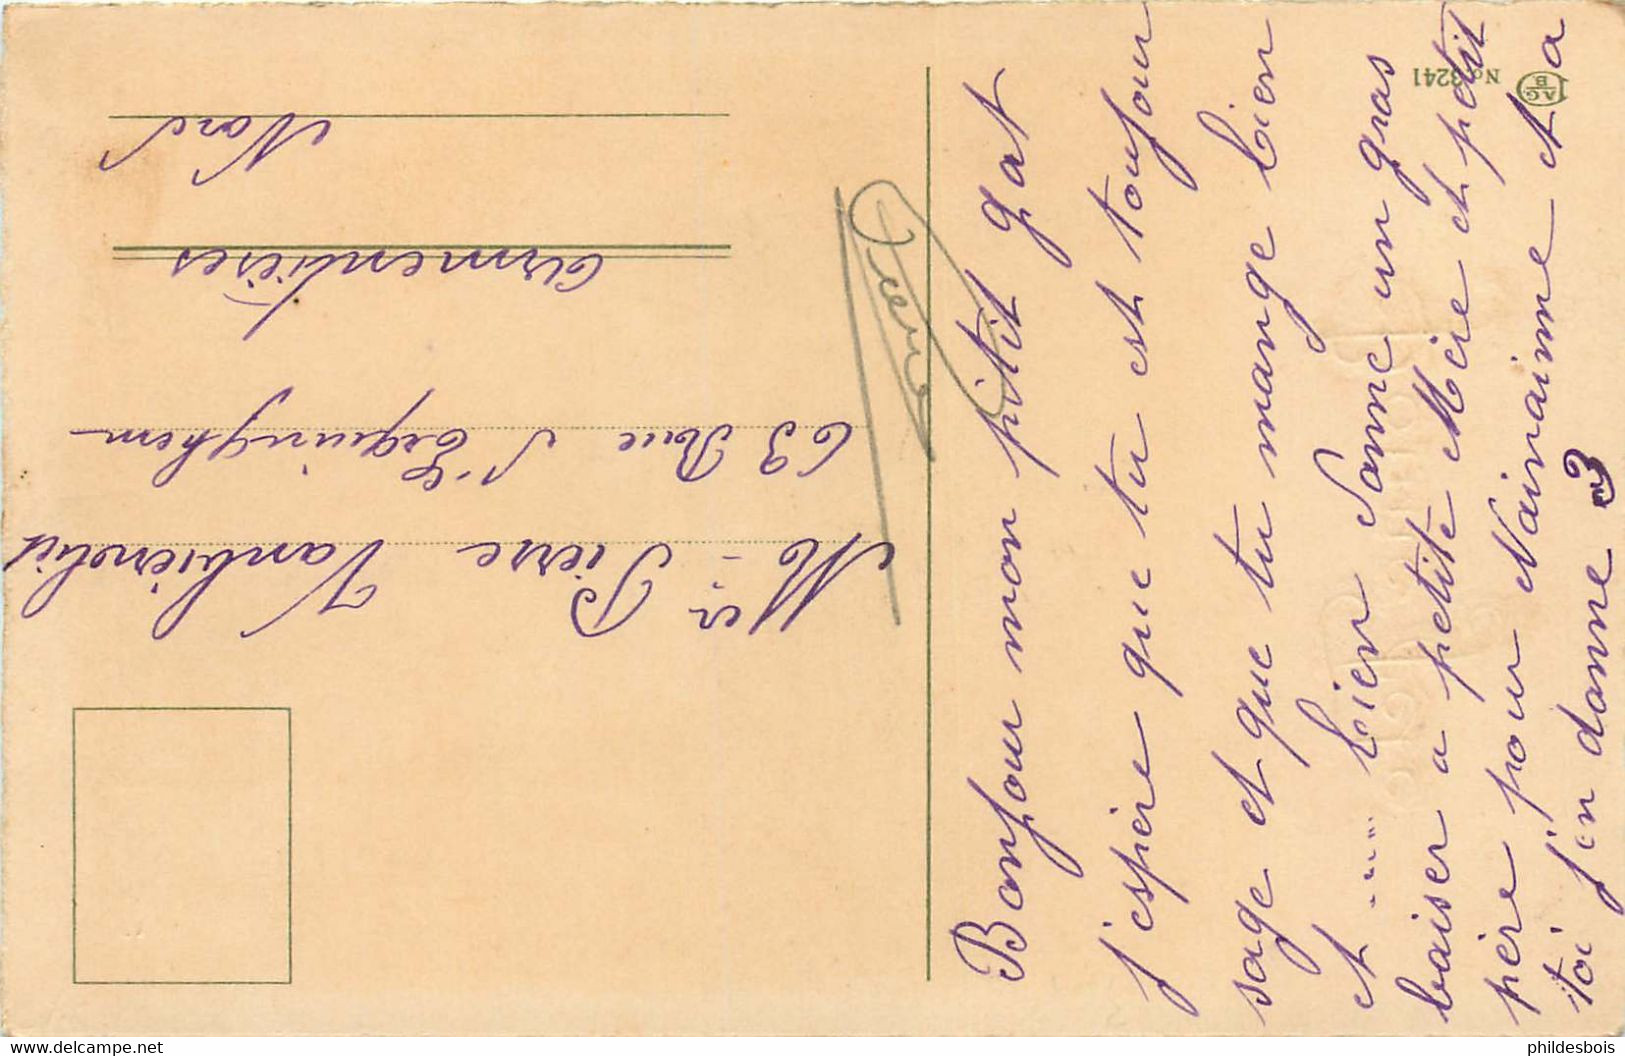 Bonjour mon pitit gat
j'espère que tu est toujour
sage et que tu mange bien
et bien Donne un gras
baiser a petite Mère et pdit
père pour Nainainne et a
toi j'en donne 3
Mer Pierre
63 Rue d'Erquinghem
armentières
Nord
Pierre
No 3241
AG B
phildesbois
www.delcampe.net